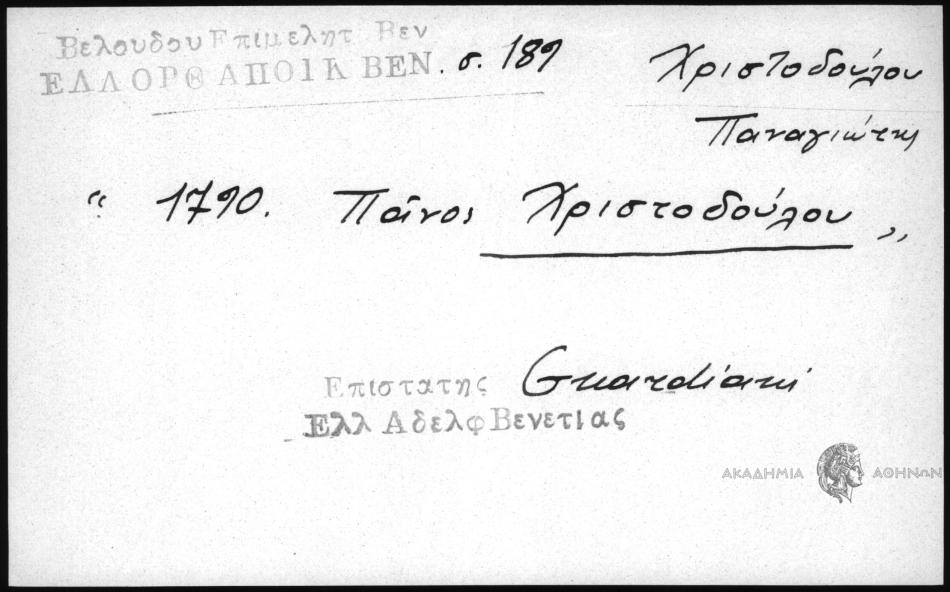 Βελουδου Επιμελητ Βεν
ΕΛΛΟΡΘ ΑΠΟΙΚ ΒΕΝ. σ. 189
Χριστοδούλου
Παναγιώτης
“ 1790. Πᾶνος Χριστοδούλου „
Επιστατης Guardiani
Ελλ Αδελφ Βενετίας
ΑΚΑΔΗΜΙΑ ΑΘΗΝΩΝ